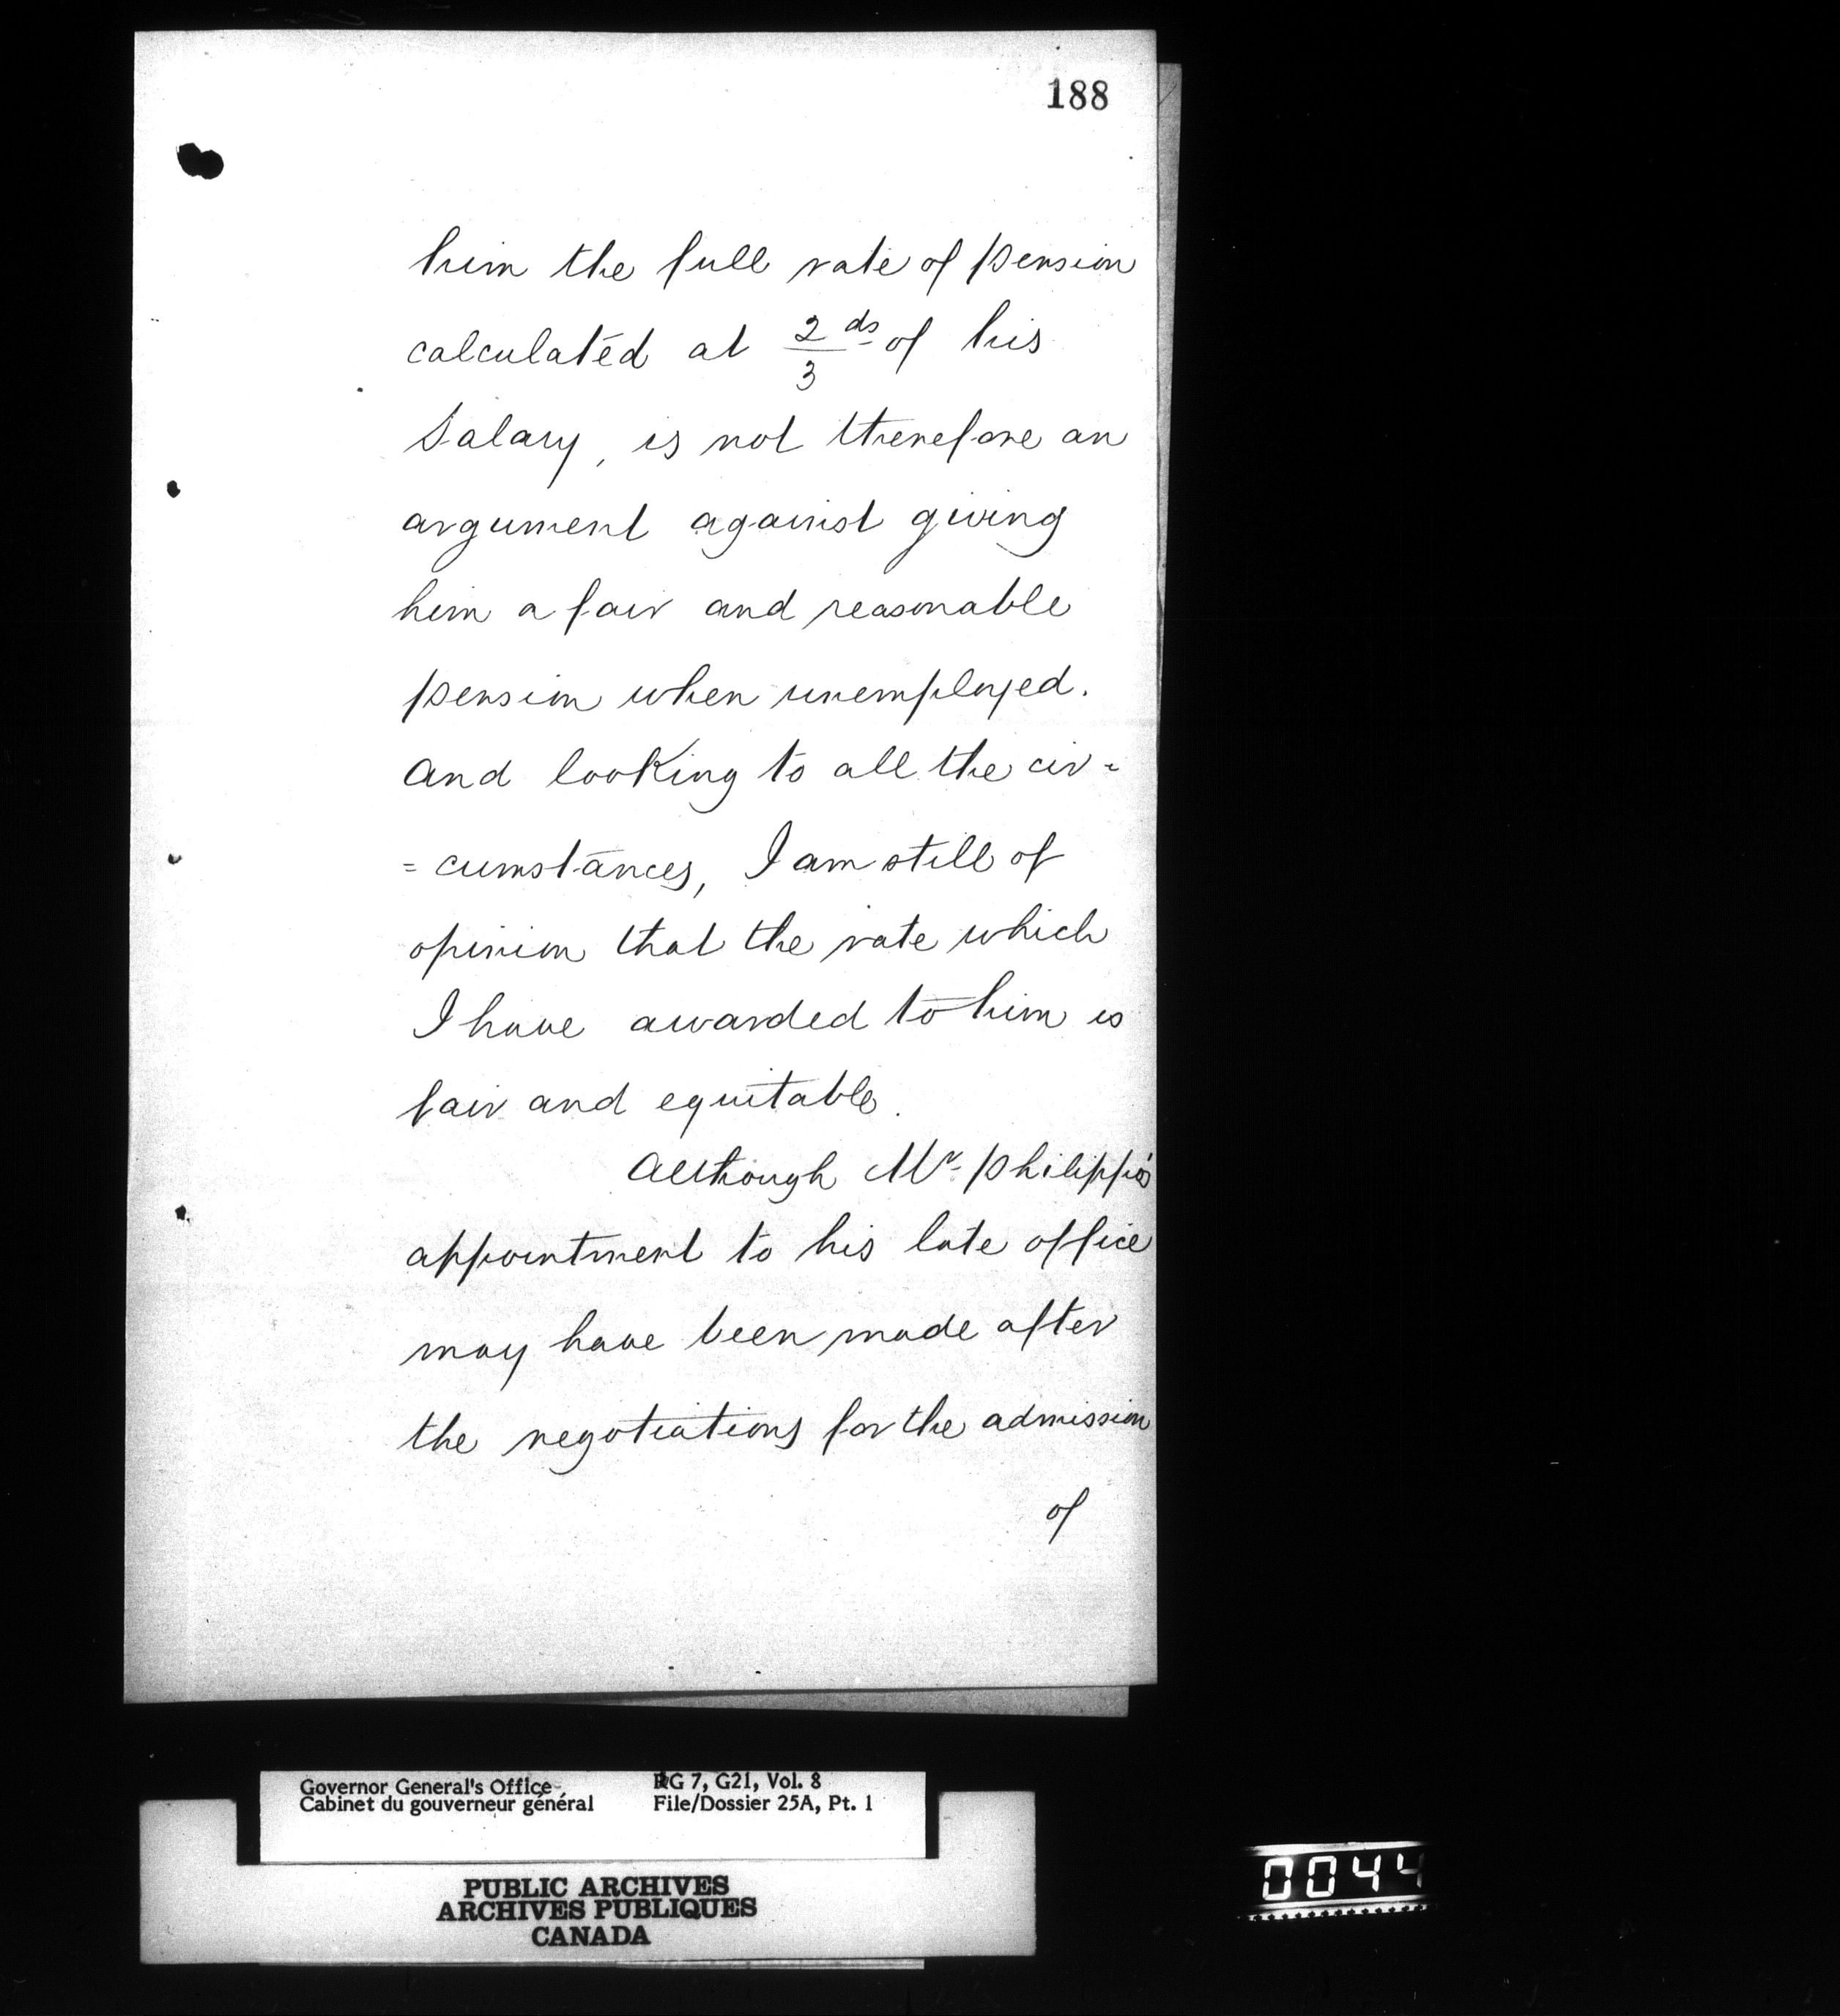 188
him the full rate of pension
calculated at 2/3 ds of his
Salary, is not therefore an
argument against giving
him a fair and reasonable
pension when unemployed.
And looking to all the cir=
=cumstances, I am still of
opinion that the rate which
I have awarded to him is
fair and equitable.
Although Mr. Philippo's
appointment to his late office
may have been made after
the negotiations for the admission
of
Governor General's Office
Cabinet du gouverneur général
RG 7, G21, Vol. 8
File/Dossier 25A, Pt. 1
PUBLIC ARCHIVES
ARCHIVES PUBLIQUES
CANADA
0044